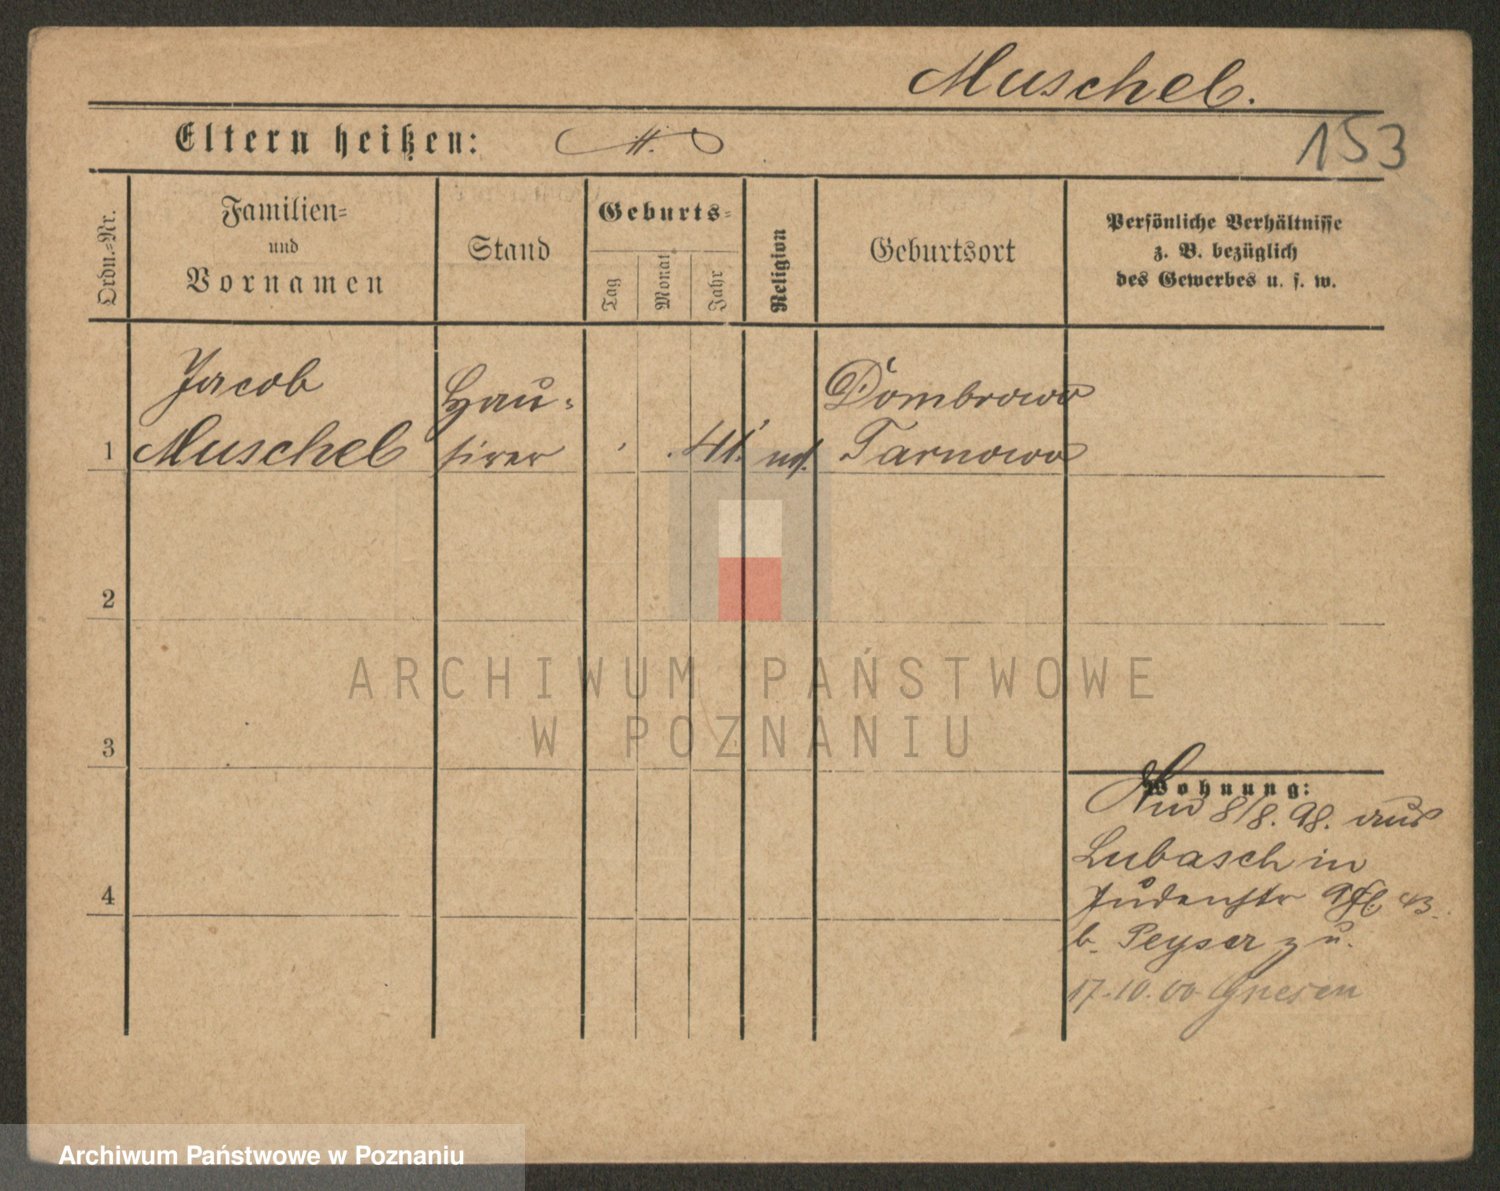 Muschel.
153
Eltern heißen:
Ordn.-Nr.
Familien-
und
Vornamen
Stand
Geburts-
Tag
Monat
Jahr
Religion
Geburtsort
Persönliche Verhältnisse
z. B. bezüglich
des Gewerbes u. s. w.
Jacob
Muschel
Hau-
sirer
41.
Dombrowo
Tarnowo
1
2
3
4
ARCHIWUM PAŃSTWOWE
W POZNANIU
Wohnung:
8/8. 98. aus
Lubasch in
Judenstr 9 43.
b. Peyser zu.
17.10.00 Gnesen
Archiwum Państwowe w Poznaniu